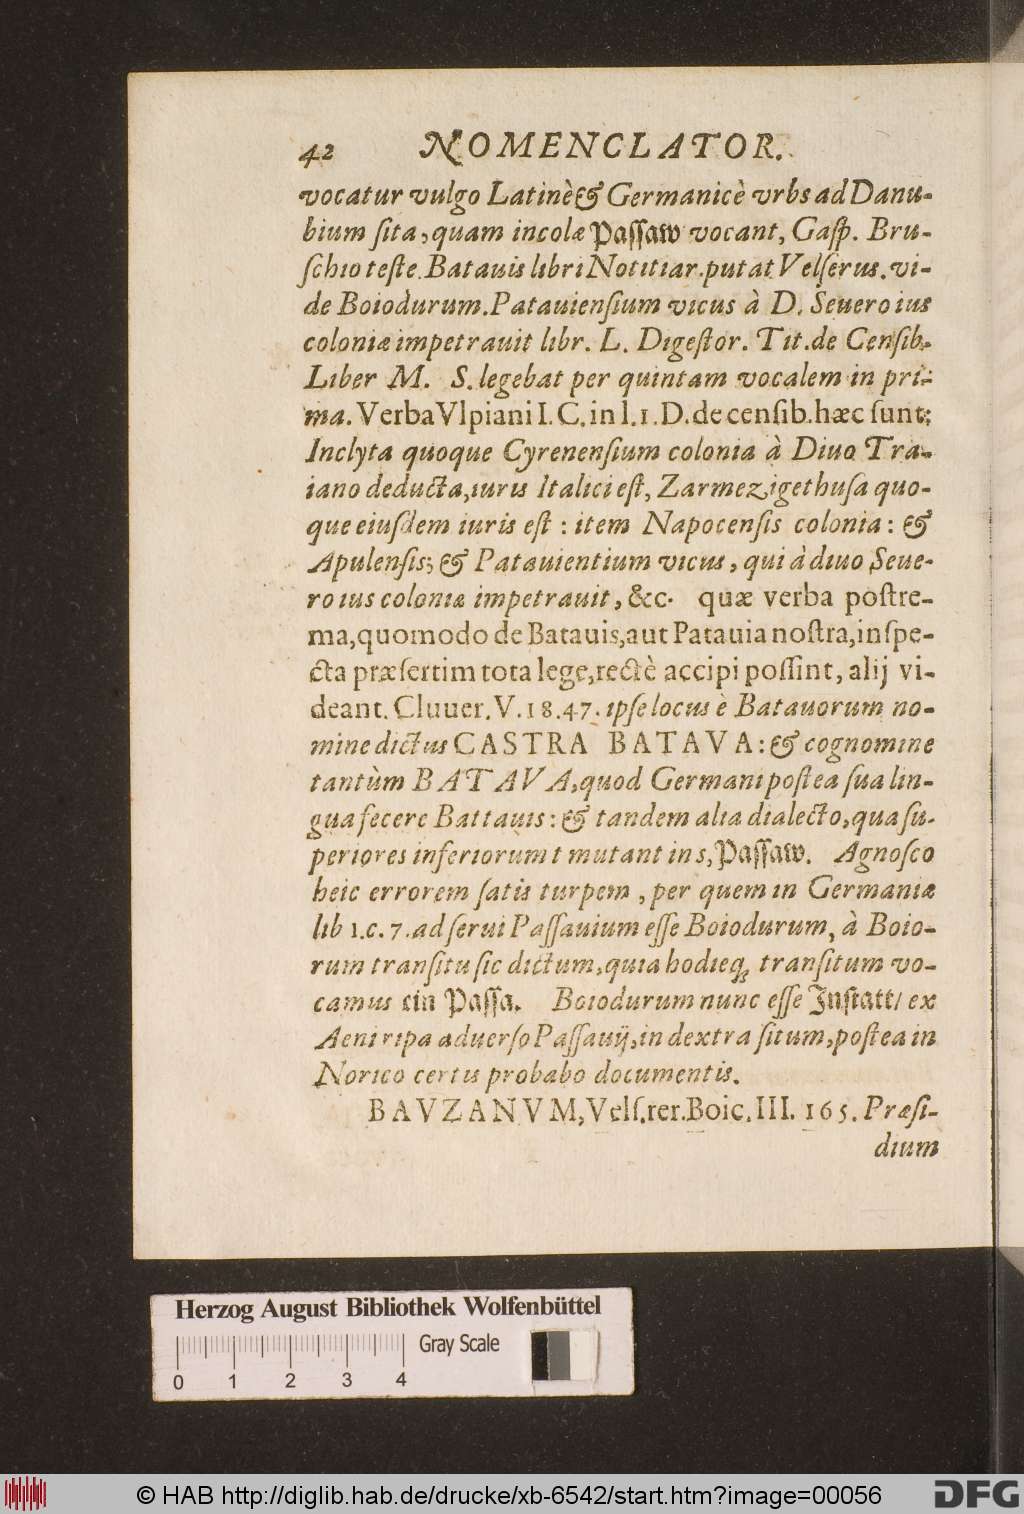 42 NOMENCLATOR.
vocatur vulgo Latinè & Germanicè vrbs ad Danu-
bium ſita, quam incolæ Paſſaw vocant, Gaſp. Bru-
ſchio teſte. Batauis libri Notitiar. putat Velſerus. vi-
de Boiodurum. Patauienſium vicus à D. Seuero ius
coloniæ impetrauit libr. L. Digeſtor. Tit. de Cenſib.
Liber M. S. legebat per quintam vocalem in pri-
ma. Verba Vlpiani I. C. in l. 1. D. de cenſib. hæc ſunt:
Inclyta quoque Cyrenenſium colonia à Diuo Tra-
iano deducta, iuris Italici eſt, Zarmezigethuſa quo-
que eiuſdem iuris eſt : item Napocenſis colonia : &
Apulenſis; & Patauientium vicus, qui à diuo Seue-
ro ius coloniæ impetrauit, &c. quæ verba poſtre-
ma, quomodo de Batauis, aut Patauia noſtra, inſpe-
cta præſertim tota lege, rectè accipi poſſint, alij vi-
deant. Cluuer. V. 18. 47. ipſe locus è Batauorum no-
mine dictus CASTRA BATAVA: & cognomine
tantùm BATAVA, quod Germani poſtea ſua lin-
gua fecere Battauis: & tandem alia dialecto, qua ſu-
periores inferiorum t mutant in s, Paſſaw. Agnoſco
heic errorem ſatis turpem, per quem in Germaniæ
lib 1. c. 7. adſerui Paſſauium eſſe Boiodurum, à Boio-
rum tranſitu ſic dictum, quia hodieq; tranſitum vo-
camus ein Paſſa. Boiodurum nunc eſſe Jnſtatt/ ex
Aeni ripa aduerſo Paſſauij, in dextra ſitum, poſtea in
Norico certis probabo documentis.
BAVZANVM, Velſ. rer. Boic. III. 165. Præſi-
dium
Herzog August Bibliothek Wolfenbüttel
Gray Scale
0 1 2 3 4
© HAB http://diglib.hab.de/drucke/xb-6542/start.htm?image=00056
DFG